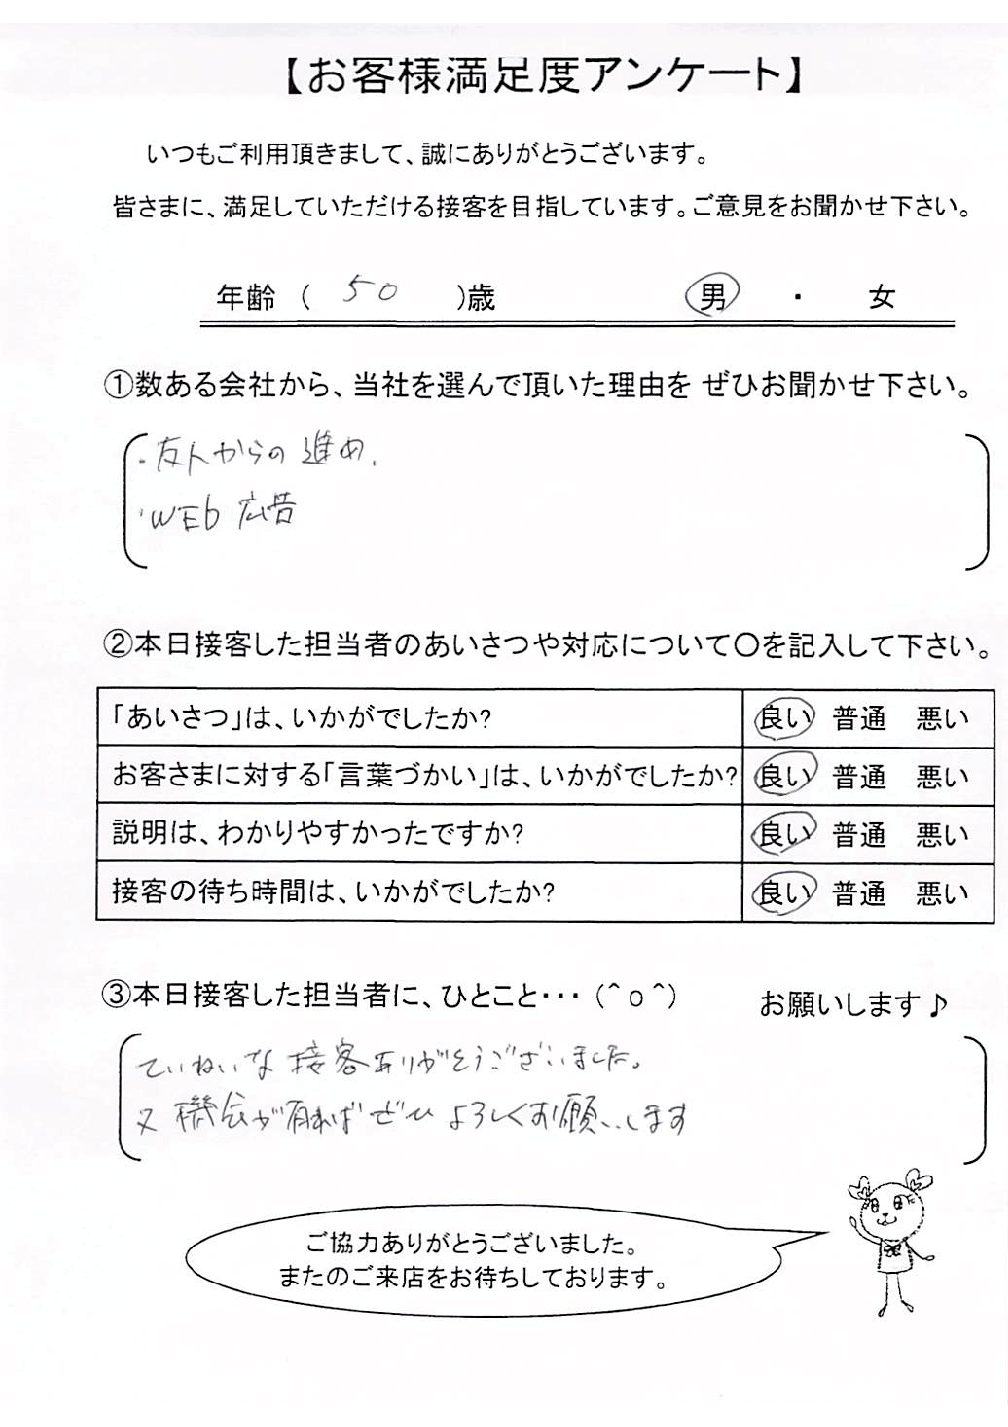 【お客様満足度アンケート】
いつもご利用頂きまして、誠にありがとうございます。
皆さまに、満足していただける接客を目指しています。ご意見をお聞かせ下さい。
年齢 ( 50 )歳 男 ・ 女
①数ある会社から、当社を選んで頂いた理由を ぜひお聞かせ下さい。
・友人からの進め.
・WEb 広告
②本日接客した担当者のあいさつや対応について〇を記入して下さい。
「あいさつ」は、いかがでしたか? 良い 普通 悪い
お客さまに対する「言葉づかい」は、いかがでしたか? 良い 普通 悪い
説明は、わかりやすかったですか? 良い 普通 悪い
接客の待ち時間は、いかがでしたか? 良い 普通 悪い
③本日接客した担当者に、ひとこと・・・ (^o^) お願いします♪
ていねいな 接客ありがとうございました。
又 機会が有ればぜひ よろしくお願いします
ご協力ありがとうございました。
またのご来店をお待ちしております。